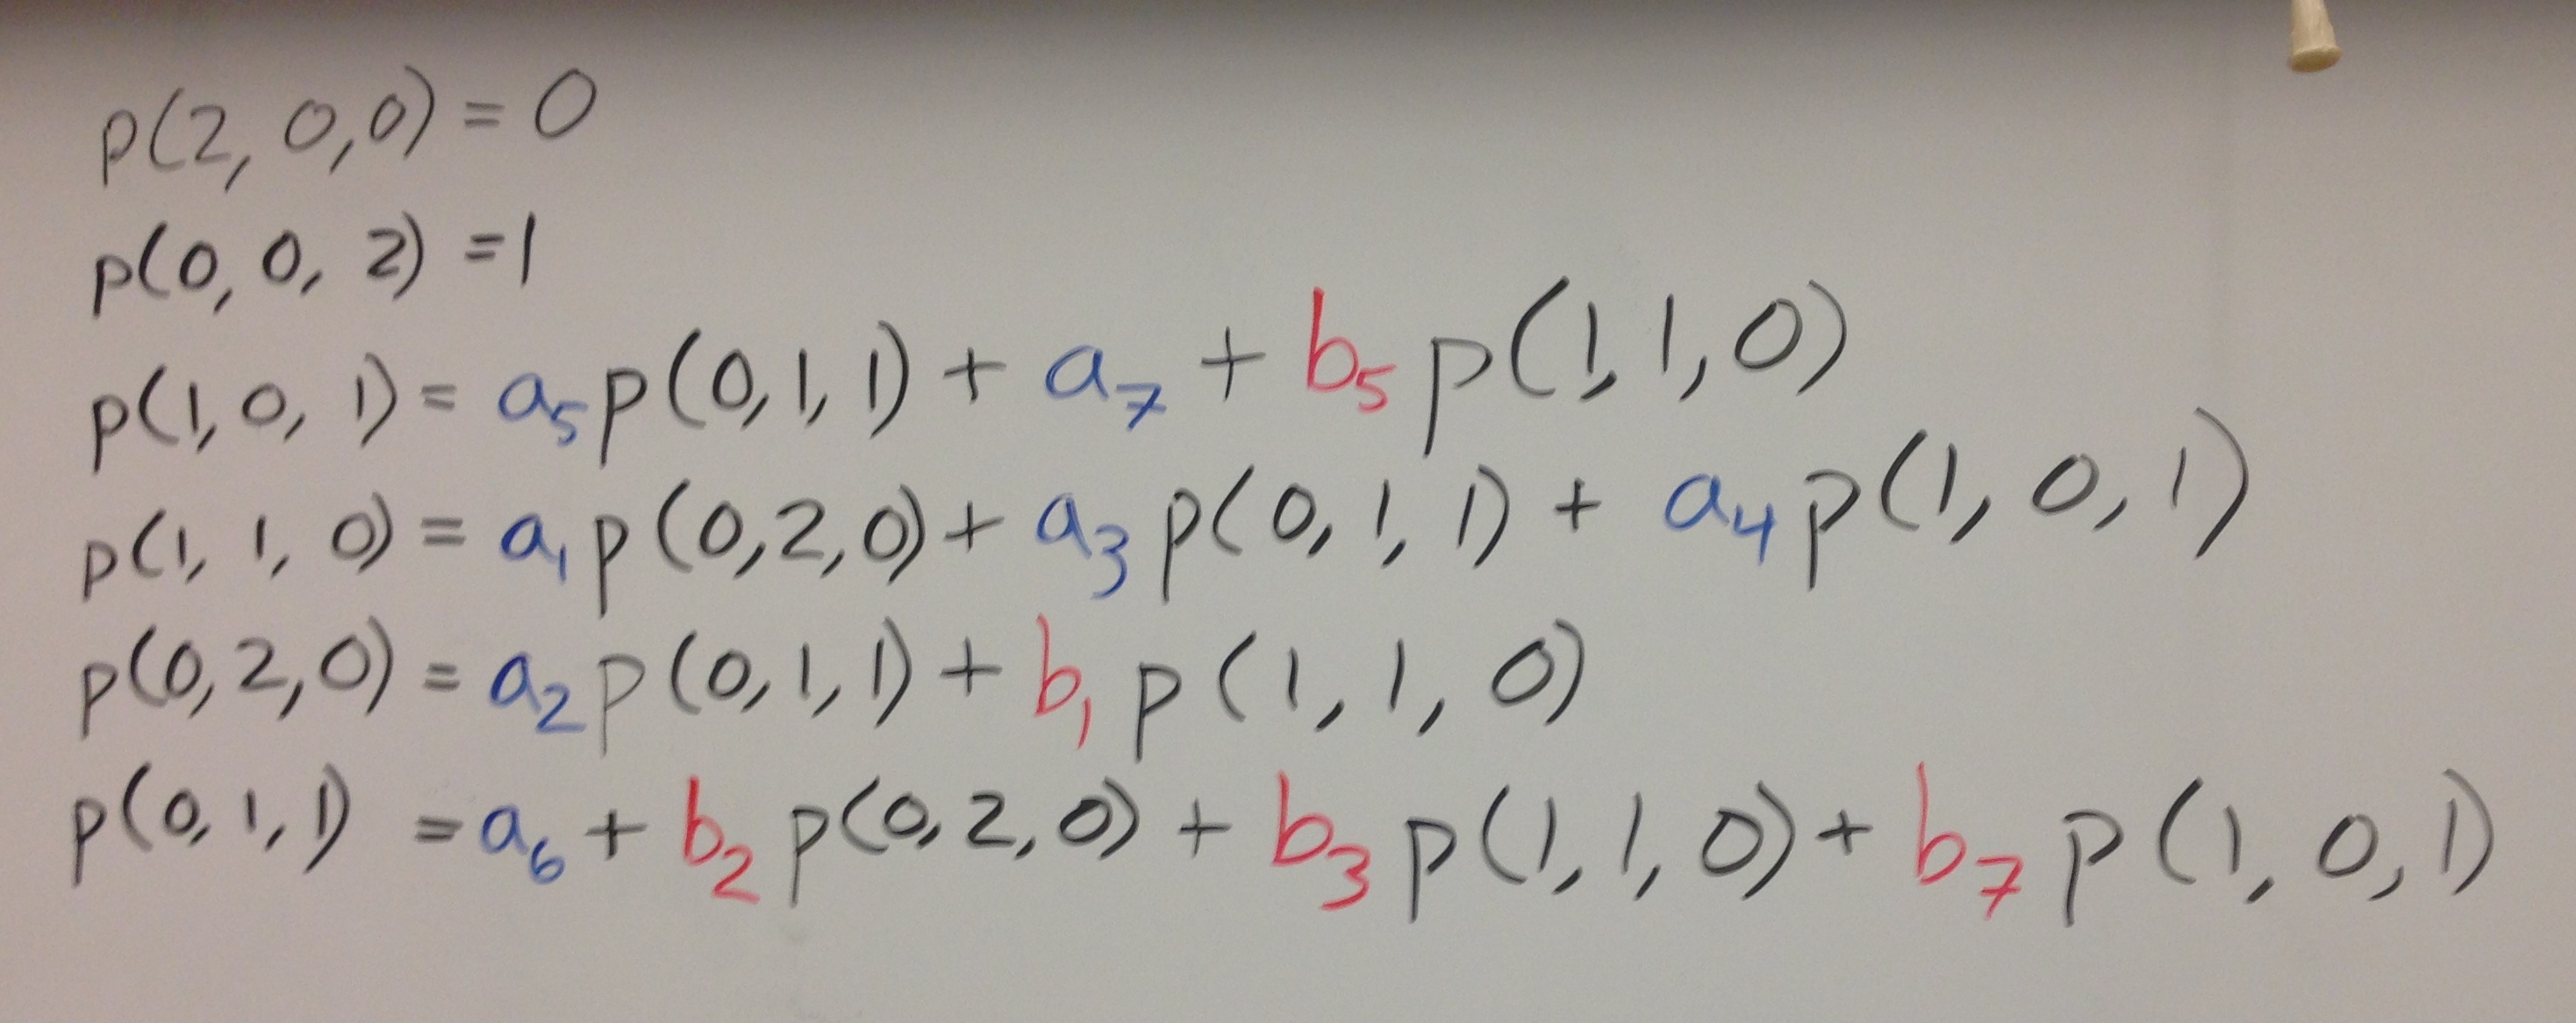 p(2, 0, 0) = 0
p(0, 0, 2) = 1
p(1, 0, 1) = a₅p(0, 1, 1) + a₇ + b₅p(1, 1, 0)
p(1, 1, 0) = a₁p(0, 2, 0) + a₃p(0, 1, 1) + a₄p(1, 0, 1)
p(0, 2, 0) = a₂p(0, 1, 1) + b₁p(1, 1, 0)
p(0, 1, 1) = a₆ + b₂p(0, 2, 0) + b₃p(1, 1, 0) + b₇p(1, 0, 1)